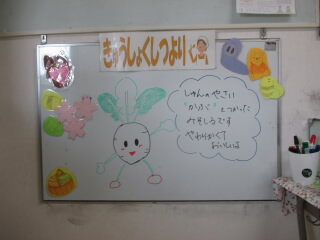 きゅうしょくしつより
しゅんのやさい
"かぶ" をつかった
みそしるです
やわらかくて
おいしいよ